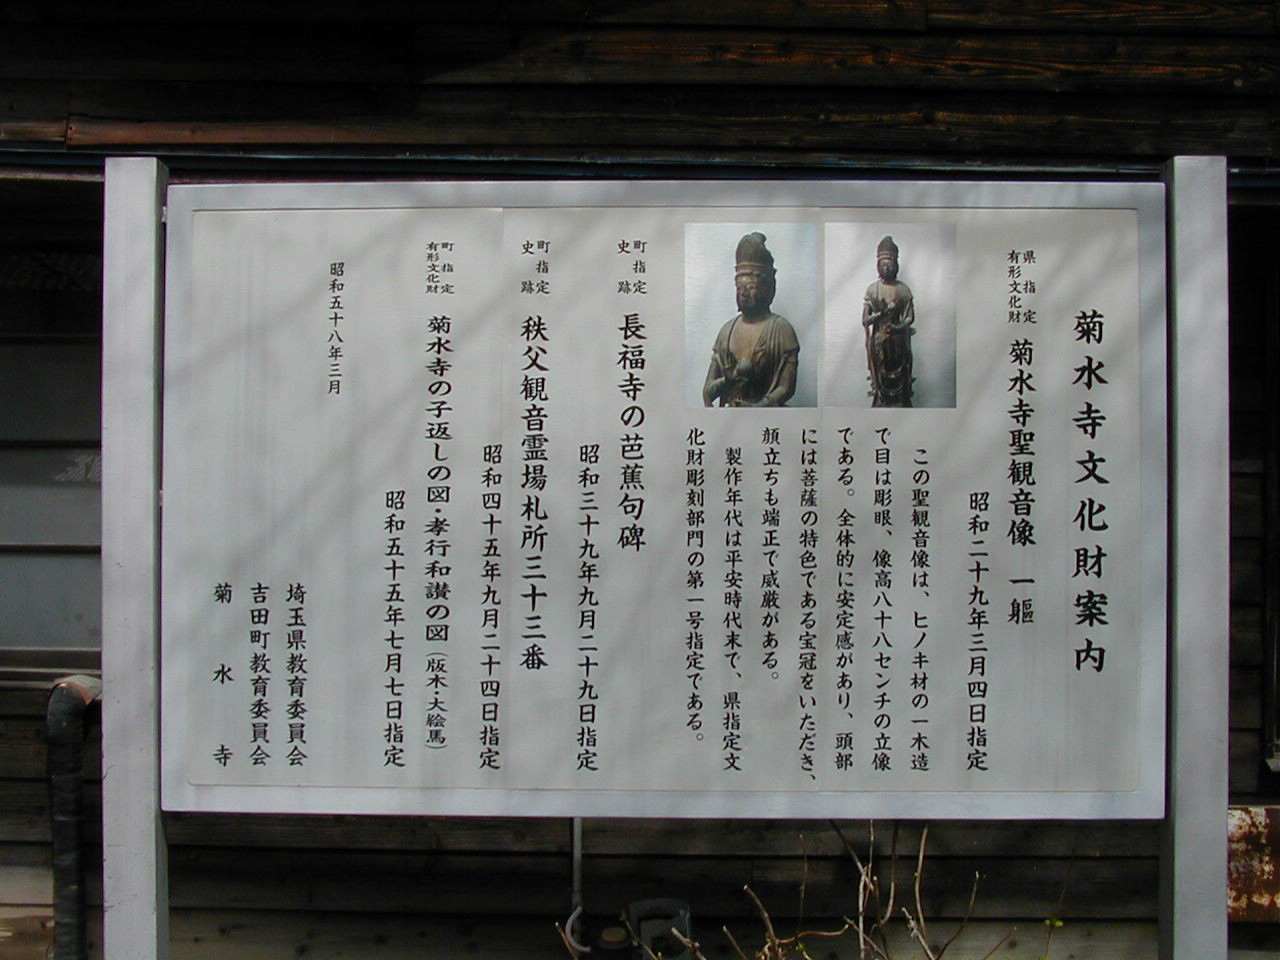 菊水寺文化財案内
県指定
有形文化財
菊水寺聖観音像 一軀
昭和二十九年三月四日指定
この聖観音像は、ヒノキ材の一木造
で目は彫眼、像高八十八センチの立像
である。全体的に安定感があり、頭部
には菩薩の特色である宝冠をいただき、
顔立ちも端正で威厳がある。
製作年代は平安時代末で、県指定文
化財彫刻部門の第一号指定である。
町指定
史跡
長福寺の芭蕉句碑
昭和三十九年九月二十九日指定
町指定
史跡
秩父観音霊場札所三十三番
昭和四十五年九月二十四日指定
町指定
有形文化財
菊水寺の子返しの図・孝行和讃の図(版木・大絵馬)
昭和五十五年七月七日指定
昭和五十八年三月
埼玉県教育委員会
吉田町教育委員会
菊水寺